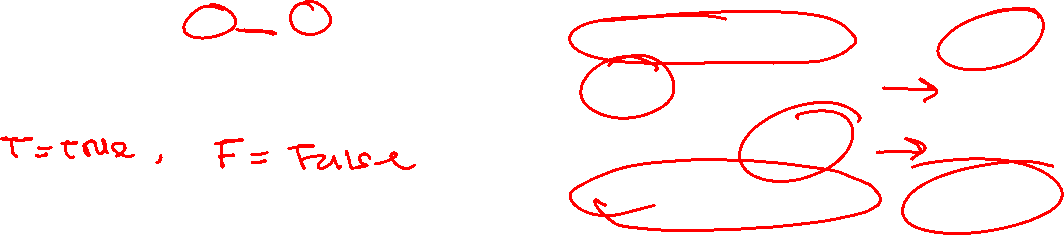 T = true, F = False